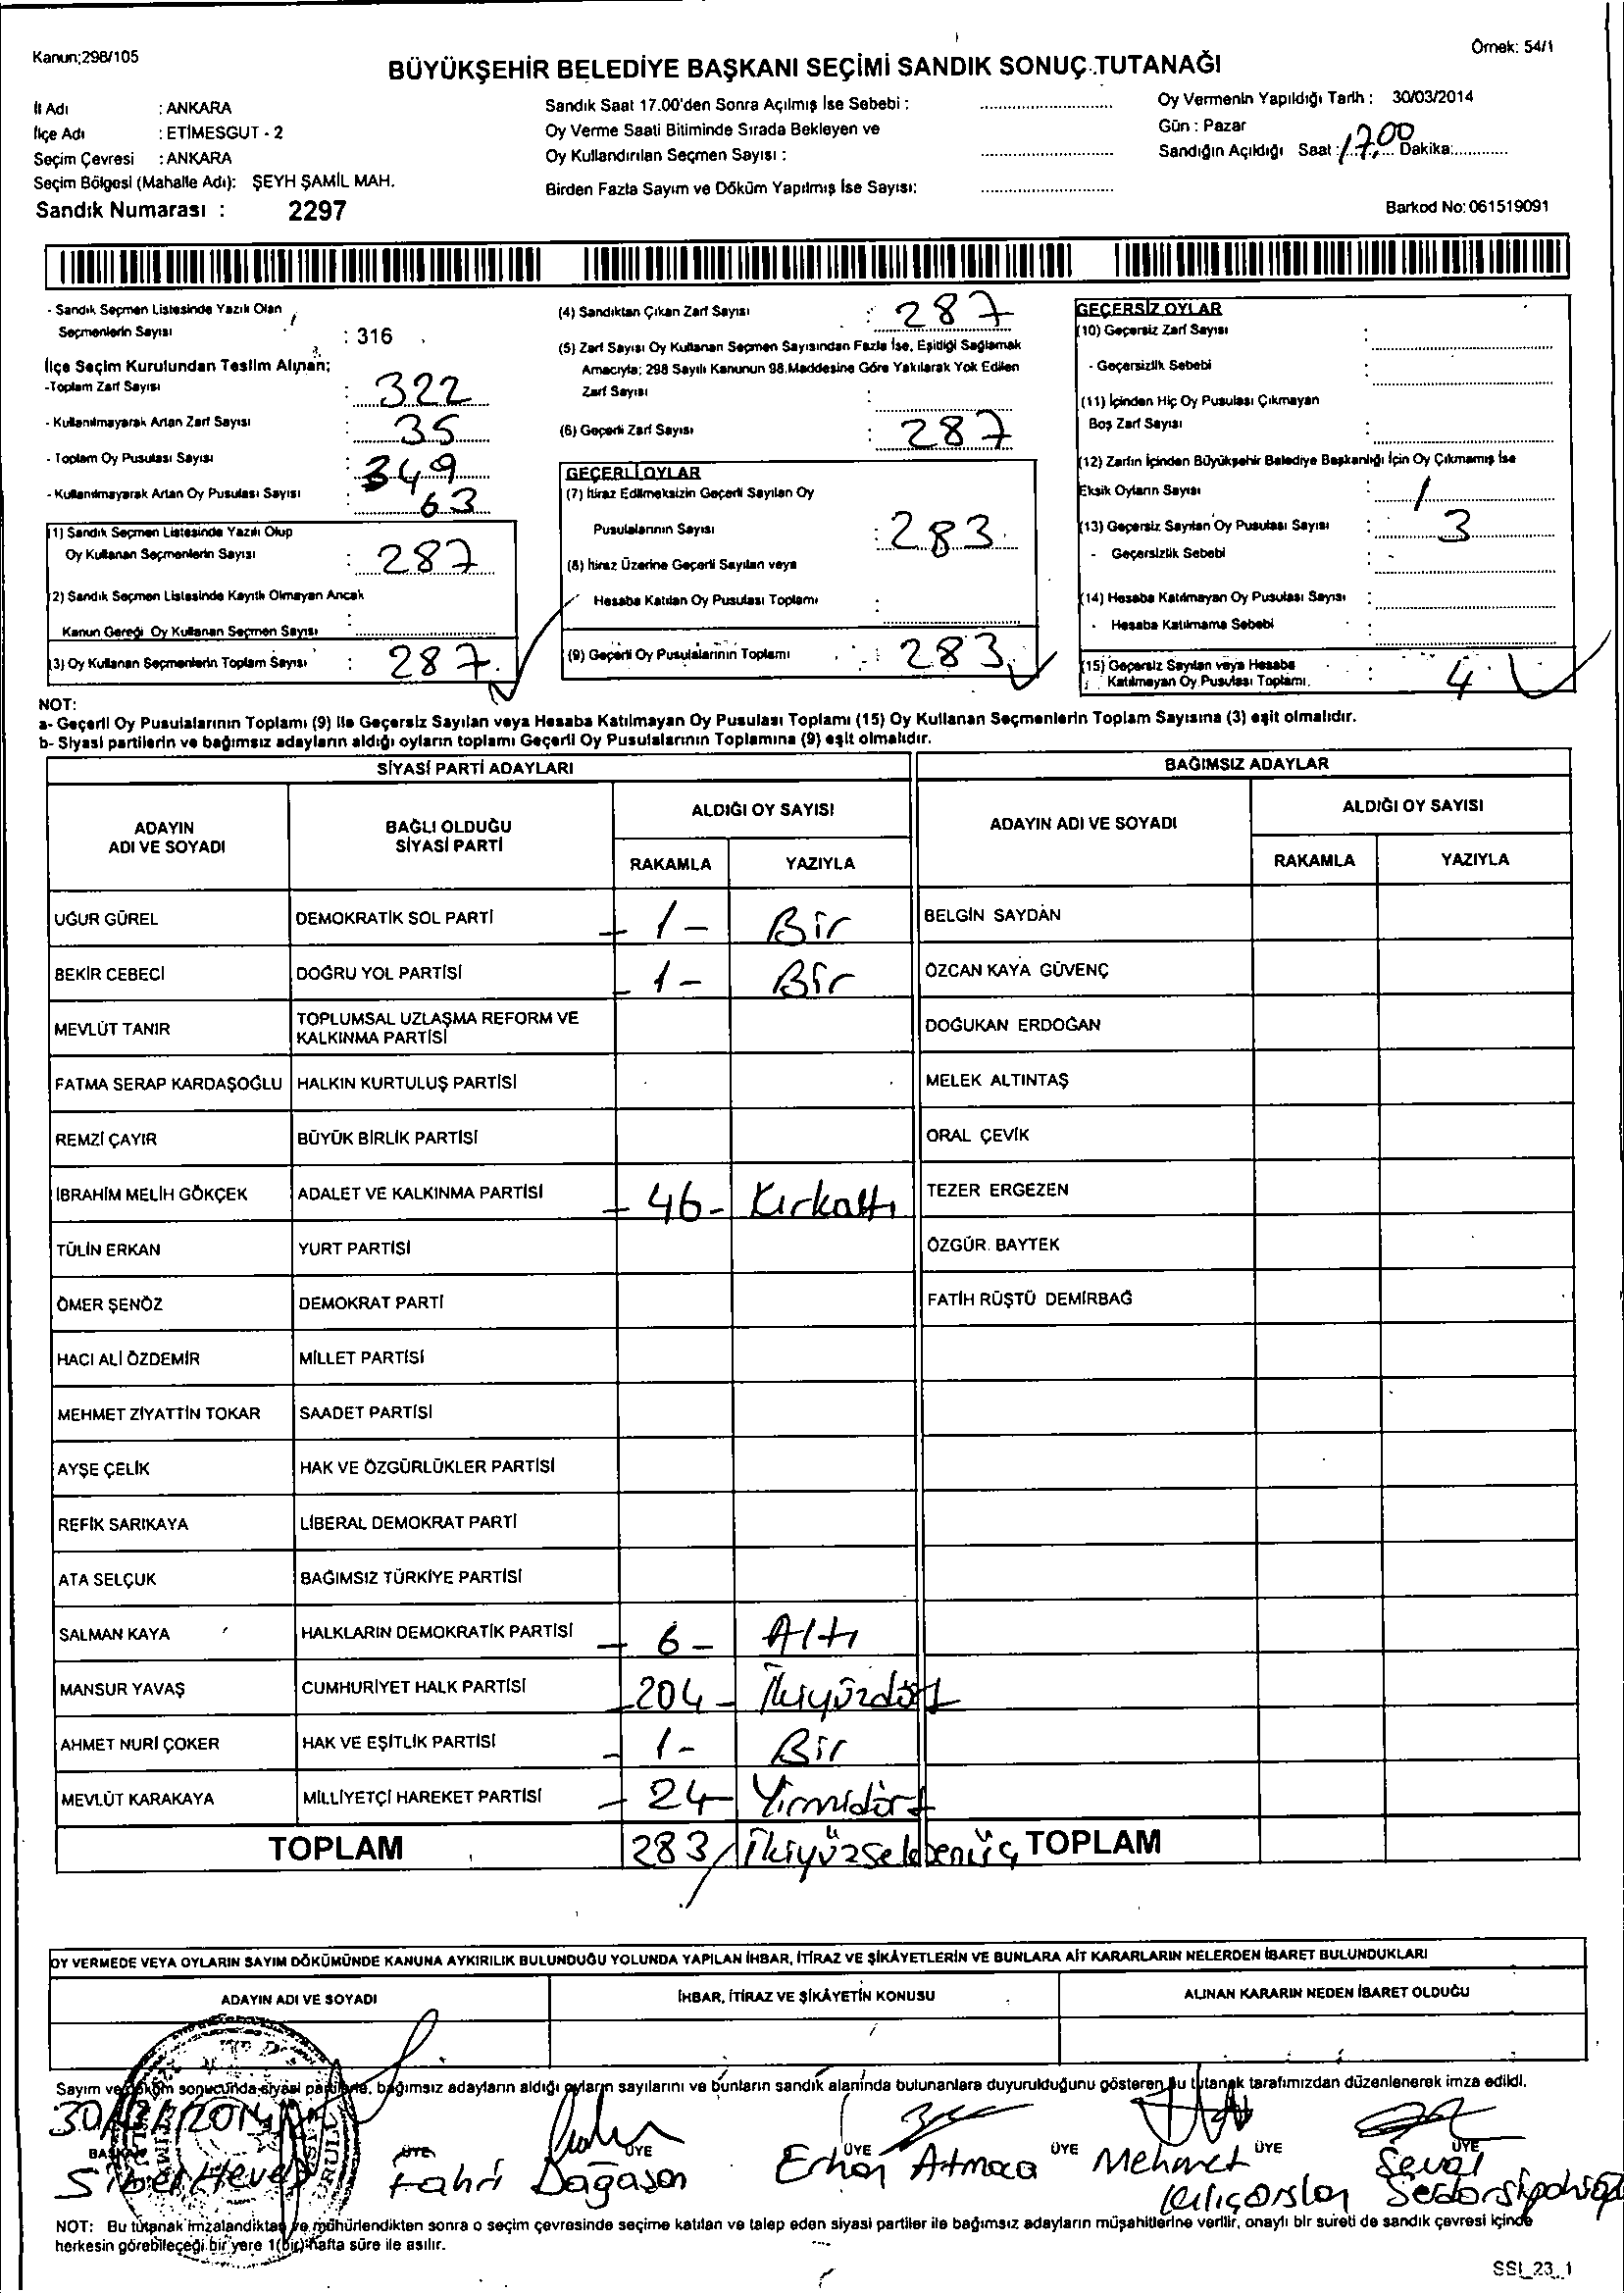 Kanun;298/105
Örnek: 54/1
BÜYÜKŞEHİR BELEDİYE BAŞKANI SEÇİMİ SANDIK SONUÇ TUTANAĞI
İl Adı : ANKARA
İlçe Adı : ETİMESGUT - 2
Seçim Çevresi : ANKARA
Seçim Bölgesi (Mahalle Adı): ŞEYH ŞAMİL MAH.
Sandık Numarası : 2297
Sandık Saat 17.00'den Sonra Açılmış İse Sebebi :
Oy Verme Saati Bitiminde Sırada Bekleyen ve
Oy Kullandırılan Seçmen Sayısı :
Birden Fazla Sayım ve Döküm Yapılmış İse Sayısı:
Oy Vermenin Yapıldığı Tarih : 30/03/2014
Gün : Pazar
Sandığın Açıldığı Saat : 17,00 Dakika:
Barkod No: 061519091
- Sandık Seçmen Listesinde Yazılı Olan
Seçmenlerin Sayısı : 316
İlçe Seçim Kurulundan Teslim Alınan;
-Toplam Zarf Sayısı : 322
- Kullanılmayarak Artan Zarf Sayısı : 35
- Toplam Oy Pusulası Sayısı : 349
- Kullanılmayarak Artan Oy Pusulası Sayısı : 63
(1) Sandık Seçmen Listesinde Yazılı Olup
Oy Kullanan Seçmenlerin Sayısı : 287
(2) Sandık Seçmen Listesinde Kayıtlı Olmayan Ancak
Kanun Gereği Oy Kullanan Seçmen Sayısı :
(3) Oy Kullanan Seçmenlerin Toplam Sayısı : 287
(4) Sandıktan Çıkan Zarf Sayısı : 287
(5) Zarf Sayısı Oy Kullanan Seçmen Sayısından Fazla İse, Eşitliği Sağlamak
Amacıyla; 298 Sayılı Kanunun 98.Maddesine Göre Yakılarak Yok Edilen
Zarf Sayısı :
(6) Geçerli Zarf Sayısı : 287
GEÇERLİ OYLAR
(7) İtiraz Edilmeksizin Geçerli Sayılan Oy
Pusulalarının Sayısı : 283
(8) İtiraz Üzerine Geçerli Sayılan veya
Hesaba Katılan Oy Pusulası Toplamı :
(9) Geçerli Oy Pusulalarının Toplamı : 283
GEÇERSİZ OYLAR
(10) Geçersiz Zarf Sayısı :
- Geçersizlik Sebebi :
(11) İçinden Hiç Oy Pusulası Çıkmayan
Boş Zarf Sayısı :
(12) Zarfın İçinden Büyükşehir Belediye Başkanlığı İçin Oy Çıkmamış İse
Eksik Oyların Sayısı : 1
(13) Geçersiz Sayılan Oy Pusulası Sayısı : 3
- Geçersizlik Sebebi :
(14) Hesaba Katılmayan Oy Pusulası Sayısı :
- Hesaba Katılmama Sebebi :
(15) Geçersiz Sayılan veya Hesaba
Katılmayan Oy Pusulası Toplamı. : 4
NOT:
a- Geçerli Oy Pusulalarının Toplamı (9) ile Geçersiz Sayılan veya Hesaba Katılmayan Oy Pusulası Toplamı (15) Oy Kullanan Seçmenlerin Toplam Sayısına (3) eşit olmalıdır.
b- Siyasi partilerin ve bağımsız adayların aldığı oyların toplamı Geçerli Oy Pusulalarının Toplamına (9) eşit olmalıdır.
SİYASİ PARTİ ADAYLARI
BAĞIMSIZ ADAYLAR
ADAYIN ADI VE SOYADI
BAĞLI OLDUĞU SİYASİ PARTİ
ALDIĞI OY SAYISI
RAKAMLA YAZIYLA
ADAYIN ADI VE SOYADI
ALDIĞI OY SAYISI
RAKAMLA YAZIYLA
UĞUR GÜREL DEMOKRATİK SOL PARTİ - 1 - Bir BELGİN SAYDAN
BEKİR CEBECİ DOĞRU YOL PARTİSİ - 1 - Bir ÖZCAN KAYA GÜVENÇ
MEVLÜT TANIR TOPLUMSAL UZLAŞMA REFORM VE KALKINMA PARTİSİ DOĞUKAN ERDOĞAN
FATMA SERAP KARDAŞOĞLU HALKIN KURTULUŞ PARTİSİ MELEK ALTINTAŞ
REMZİ ÇAYIR BÜYÜK BİRLİK PARTİSİ ORAL ÇEVİK
İBRAHİM MELİH GÖKÇEK ADALET VE KALKINMA PARTİSİ - 46 - Kırkaltı TEZER ERGEZEN
TÜLİN ERKAN YURT PARTİSİ ÖZGÜR BAYTEK
ÖMER ŞENÖZ DEMOKRAT PARTİ FATİH RÜŞTÜ DEMİRBAĞ
HACI ALİ ÖZDEMİR MİLLET PARTİSİ
MEHMET ZİYATTİN TOKAR SAADET PARTİSİ
AYŞE ÇELİK HAK VE ÖZGÜRLÜKLER PARTİSİ
REFİK SARIKAYA LİBERAL DEMOKRAT PARTİ
ATA SELÇUK BAĞIMSIZ TÜRKİYE PARTİSİ
SALMAN KAYA HALKLARIN DEMOKRATİK PARTİSİ - 6 - Altı
MANSUR YAVAŞ CUMHURİYET HALK PARTİSİ - 204 - İkiyüzdört
AHMET NURİ ÇOKER HAK VE EŞİTLİK PARTİSİ - 1 - Bir
MEVLÜT KARAKAYA MİLLİYETÇİ HAREKET PARTİSİ - 24 - Yirmidört
TOPLAM 283 / İkiyüzseksenüç TOPLAM
OY VERMEDE VEYA OYLARIN SAYIM DÖKÜMÜNDE KANUNA AYKIRILIK BULUNDUĞU YOLUNDA YAPILAN İHBAR, İTİRAZ VE ŞİKÂYETLERİN VE BUNLARA AİT KARARLARIN NELERDEN İBARET BULUNDUKLARI
ADAYIN ADI VE SOYADI İHBAR, İTİRAZ VE ŞİKÂYETİN KONUSU ALINAN KARARIN NEDEN İBARET OLDUĞU
Sayım ve döküm sonucunda siyasi partilerle, bağımsız adayların aldığı oyların sayılarını ve bunların sandık alanında bulunanlara duyurulduğunu gösteren bu tutanak tarafımızdan düzenlenerek imza edildi.
BAŞKAN ÜYE ÜYE ÜYE ÜYE ÜYE
Fahri Dağasan Erhan Atmaca Mehmet Kılıçarslan
NOT: Bu tutanak imzalandıktan ve mühürlendikten sonra o seçim çevresinde seçime katılan ve talep eden siyasi partiler ile bağımsız adayların müşahitlerine verilir, onaylı bir sureti de sandık çevresi içinde
herkesin görebileceği bir yere 1(bir) hafta süre ile asılır.
SSI_23_1